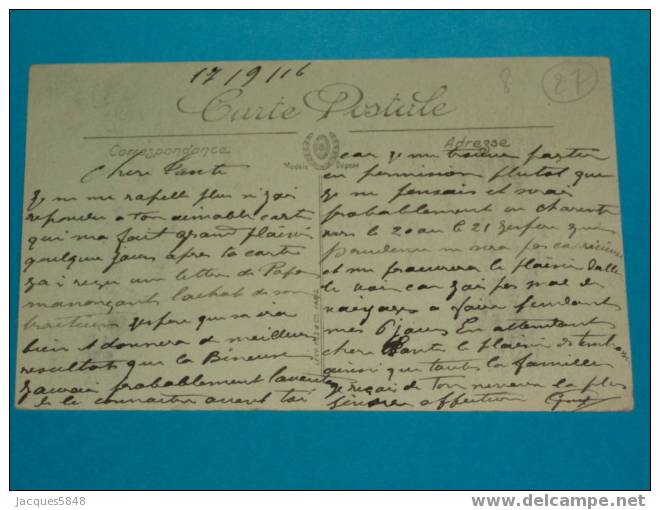 17/9/16
8
27
Carte Postale
Correspondance
Adresse
Modèle Déposé
Chere Tante
Je ne me rapelle plus si j'ai
repondu a ton aimable carte
qui m'a fait grand plaisir
quelque jours apres ta carte
j'ai reçu une lettre de Papa
m'anonçant l'achat de son
tracteur j'espere qu'il ira
bien et donnera de meilleur
resultat que la Bineuse
j'aurai probablement l'avantage
de le connaitre avant toi
car je me trouve partir
en permission plutot que
je ne pensais et irai
probablement en charente
vers le 20 ou le 21 j'espere que
ne sera pas
et me procurera le plaisir d'aller
le voir car j'ai pas mal de
voyages a faire pendant
mes 6 jours En attendant
chere Tante le plaisir de t'embrasser
ainsi que toute la famille
reçois de ton neveu la plus
sincere affection
Jacques5848
delcampe.net